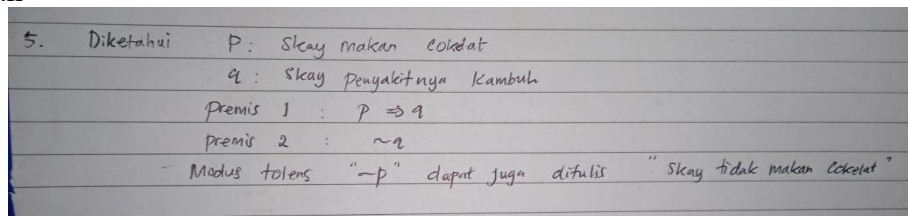 5. Diketahui P : Skay makan cokelat
q : Skay penyakitnya kambuh
Premis 1 : p ⇒ q
premis 2 : ~q
Modus tolens "~p" dapat juga ditulis "Skay tidak makan cokelat"